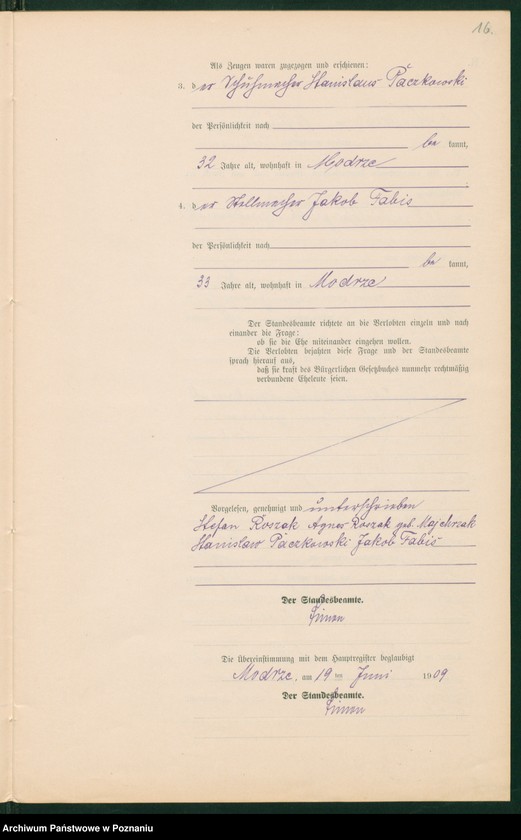 16.
Als Zeugen waren zugezogen und erschienen:
3. der Schuhmacher Stanislaus Pączkowski
der Persönlichkeit nach
be kannt,
32 Jahre alt, wohnhaft in Modrze
4. der Stellmacher Jakob Fabis
der Persönlichkeit nach
be kannt,
33 Jahre alt, wohnhaft in Modrze
Der Standesbeamte richtete an die Verlobten einzeln und nach
einander die Frage:
ob sie die Ehe miteinander eingehen wollen.
Die Verlobten bejahten diese Frage und der Standesbeamte
sprach hierauf aus,
daß sie kraft des Bürgerlichen Gesetzbuchs nunmehr rechtmäßig
verbundene Eheleute seien.
Vorgelesen, genehmigt und unterschrieben
Stefan Roszak Agnes Roszak geb. Majchrzak
Stanislaw Pączkowski Jakob Fabiś
Der Standesbeamte.
Die Übereinstimmung mit dem Hauptregister beglaubigt
Modrze, am 19 ten Juni 1909
Der Standesbeamte.
Archiwum Państwowe w Poznaniu